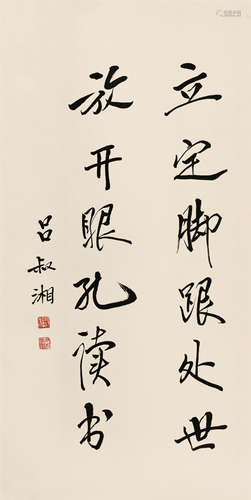 立定脚跟处世
放开眼孔读书
吕叔湘